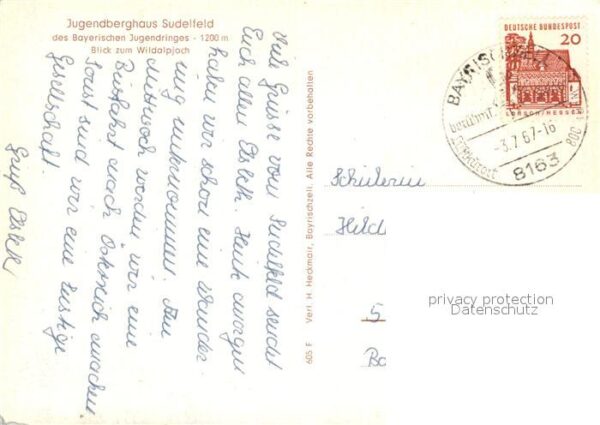 Jugendberghaus Sudelfeld
des Bayerischen Jugendringes - 1200 m
Blick zum Wildalpjoch
Viele Grüsse vom Sudelfeld sendet
Euch allen Elsbeth. Heute morgen
haben wir schon eine Wander-
ung unternommen. Am
Mittwoch werden wir eine
Busfahrt nach Österreich machen.
Sonst sind wir eine lustige
Gesellschaft.
Gruß Elsbeth
605 F Verl. H. Heckmair, Bayrischzell. Alle Rechte vorbehalten
DEUTSCHE BUNDESPOST
20
LORSCH/HESSEN
BAYRISCHZELL
-3.7.67-16
800
8163
Schülerin
Hild
5
privacy protection
Datenschutz